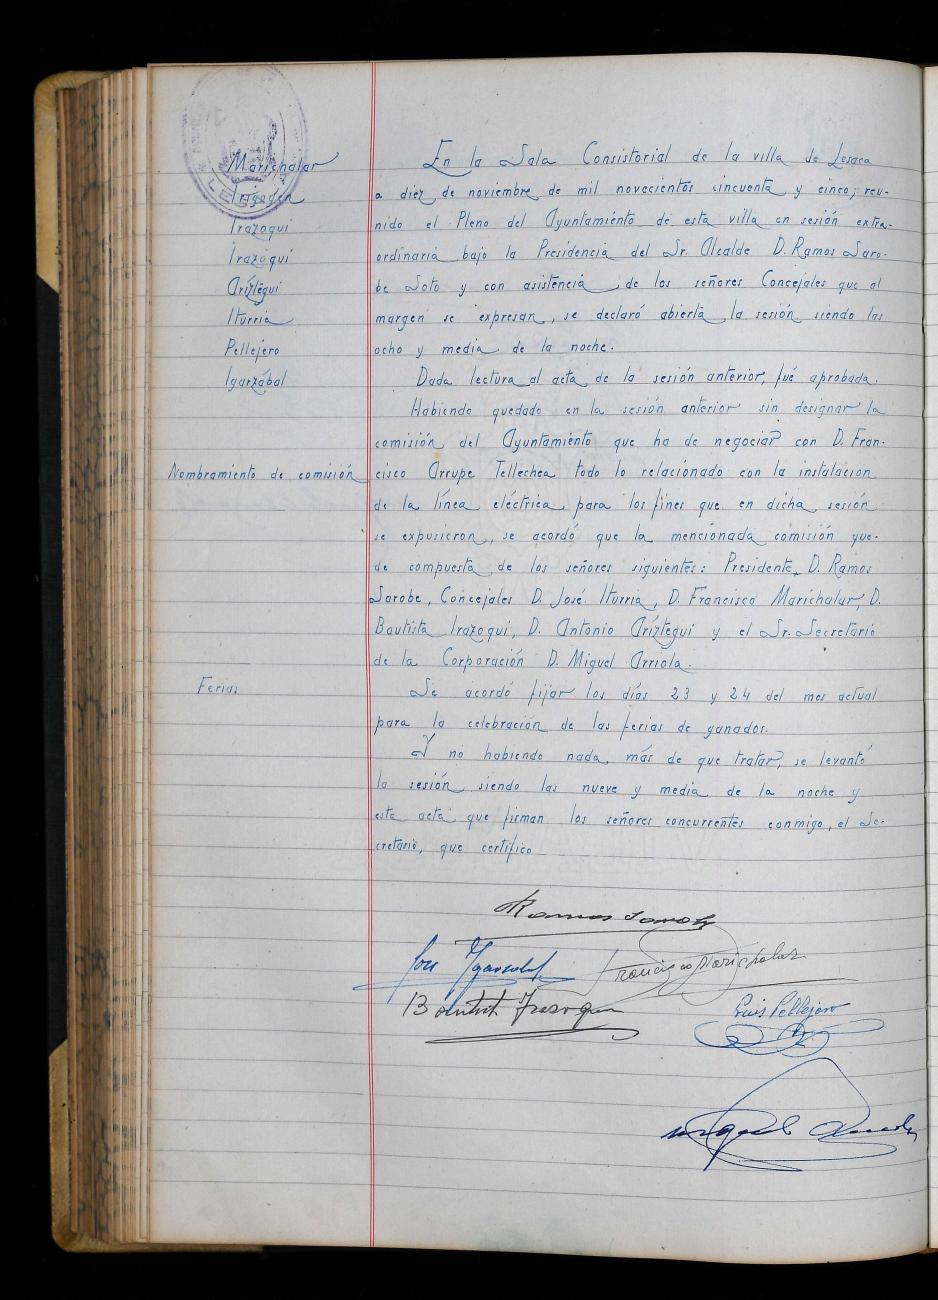 Marichalar
Irigoyen
Irazoqui
Irazoqui
Ariztegui
Iturria
Pellejero
Igarzábal
En la Sala Consistorial de la villa de Lesaca
a diez de noviembre de mil novecientos cincuenta y cinco; reu-
nido el Pleno del Ayuntamiento de esta villa en sesión extra-
ordinaria bajo la Presidencia del Sr. Alcalde D. Ramos Saro-
be Soto y con asistencia de los señores Concejales que al
margen se expresan, se declaró abierta la sesión siendo las
ocho y media de la noche.
Dada lectura al acta de la sesión anterior, fué aprobada.
Habiendo quedado en la sesión anterior sin designar la
comisión del Ayuntamiento que ha de negociar con D. Fran-
Nombramiento de comisión
cisco Arrupe Tellechea todo lo relacionado con la instalacion
de la línea eléctrica para los fines que en dicha sesión
se expusieron, se acordó que la mencionada comisión que-
de compuesta de los señores siguientes: Presidente, D. Ramos
Sarobe, Concejales D. José Iturria, D. Francisco Marichalar, D.
Bautista Irazoqui, D. Antonio Ariztegui y el Sr. Secretario
de la Corporación D. Miguel Arriola.
Ferias
Se acordó fijar los días 23 y 24 del mes actual
para la celebración de las ferias de ganados.
Y no habiendo nada más de que tratar, se levantó
la sesión siendo las nueve y media de la noche y
esta acta que firman los señores concurrentes conmigo, el Se-
cretario, que certifico
Ramos Sarobe
José Igarzabal Francisco Marichalar
Bautista Irazoqui Luis Pellejero
Miguel Arriola